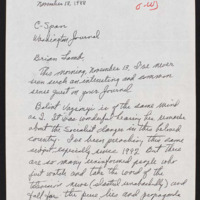 November 18, 1998
C-Span
Washington Journal
Brian Lamb,
This morning, November 18, I've never
seen such an interesting and common
sense guest on your Journal.
Balint Vazsonyi is of the same mind
as I. It was wonderful hearing the remarks
about the Socialist dangers in this beloved
country. I've been preaching this same
subject especially since 1992. But there
are so many uninformed people who
just watch and take the word of the
news (slanted unabashedly) and
fall for the pure lies and propaganda